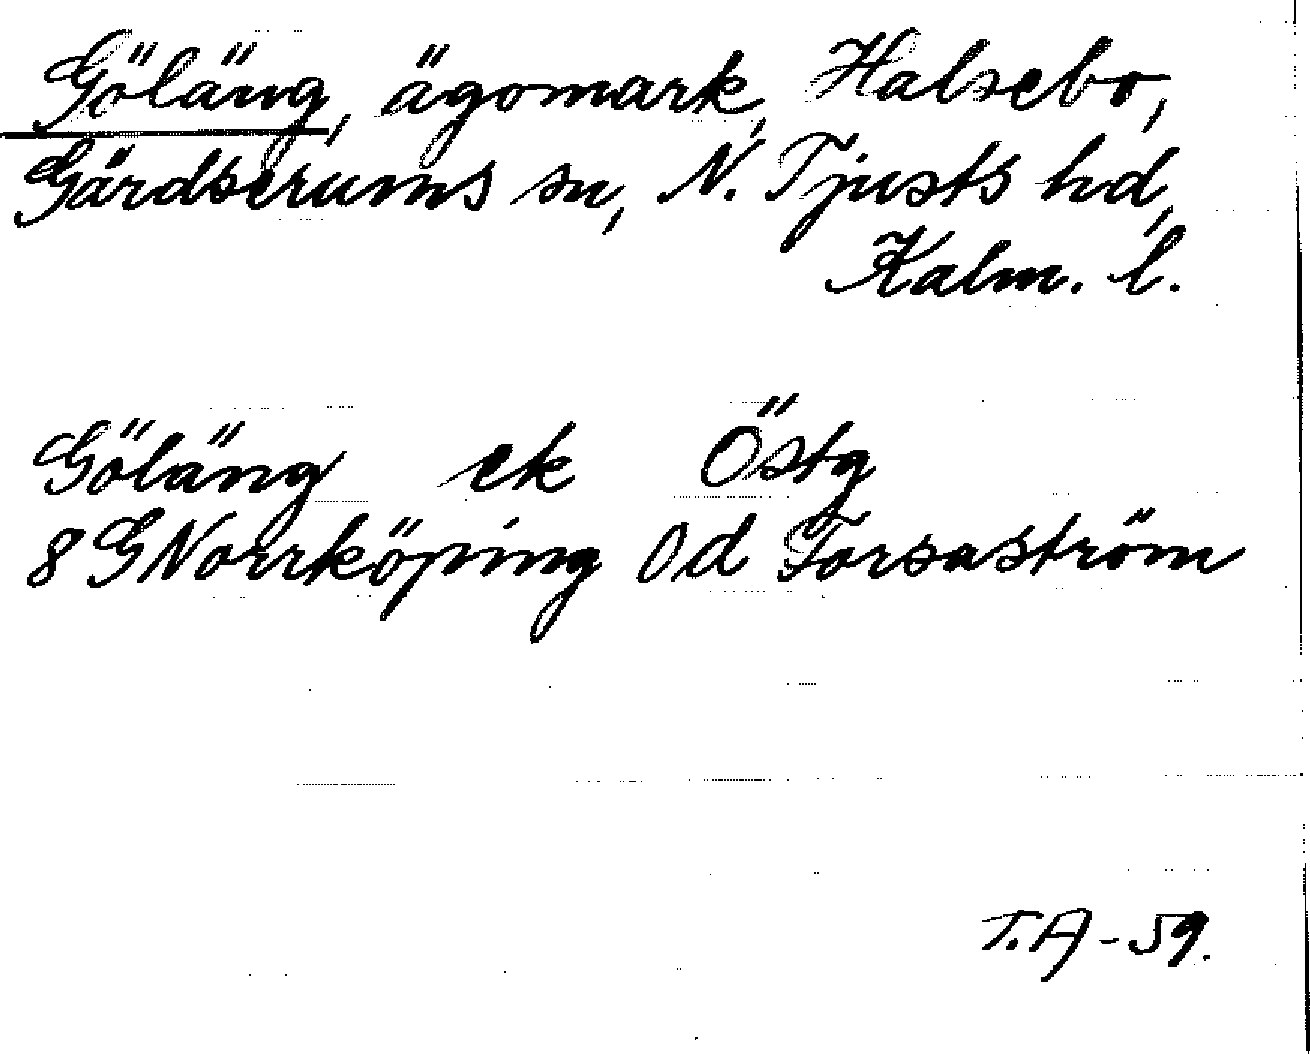 Göläng, ägomark, Halsebo,
Gärdserums sn, N. Tjusts hd,
Kalm. l.
Göläng ek Östg
8 G Norrköping 0d Torsaström
T.A - 59.